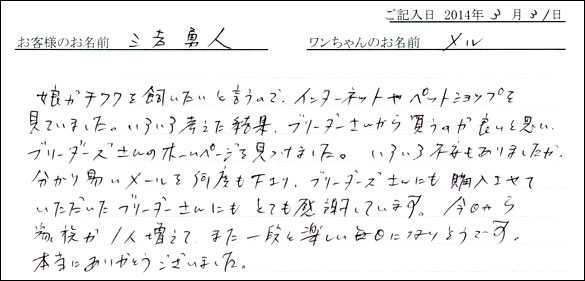 ご記入日 2014年 3月31日
お客様のお名前 三吉勇人 ワンちゃんのお名前 メル
娘がチワワを飼いたいと言うので、インターネットやペットショップを
見ていました。いろいろ考えた結果、ブリーダーさんから買うのが良いと思い、
ブリーダーズさんのホームページを見つけました。いろいろ不安もありましたが、
分かり易いメールを何度も下さり、ブリーダーズさんにも購入させて
いただいたブリーダーさんにもとても感謝しています。今日から
家族が1人増えて、また一段と楽しい毎日になりそうです。
本当にありがとうございました。